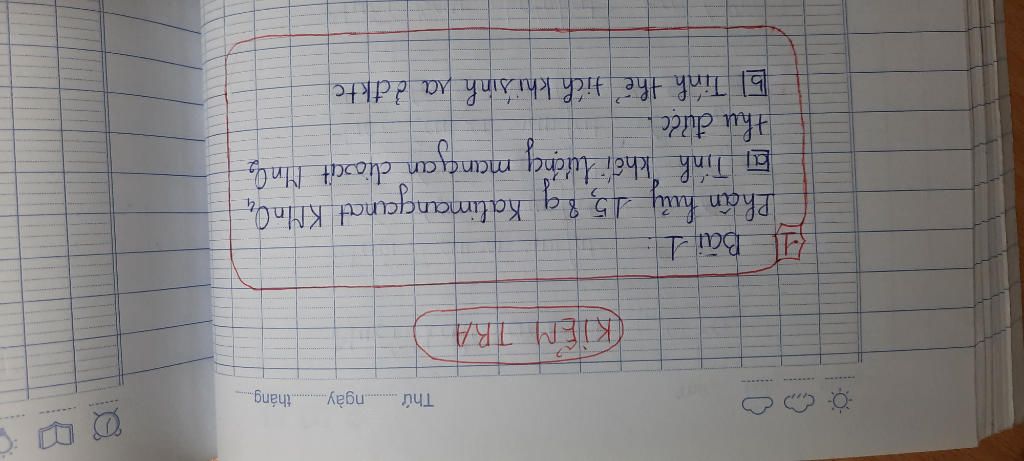 Thứ.........ngày.........tháng.........
KIỂM TRA
1 Bài 1 :
Phân hủy 15,8 g Kalimanganat KMnO₄
a Tính khối lượng mangan dioxit MnO₂
thu được.
b Tính thể tích khí sinh ra ở đktc